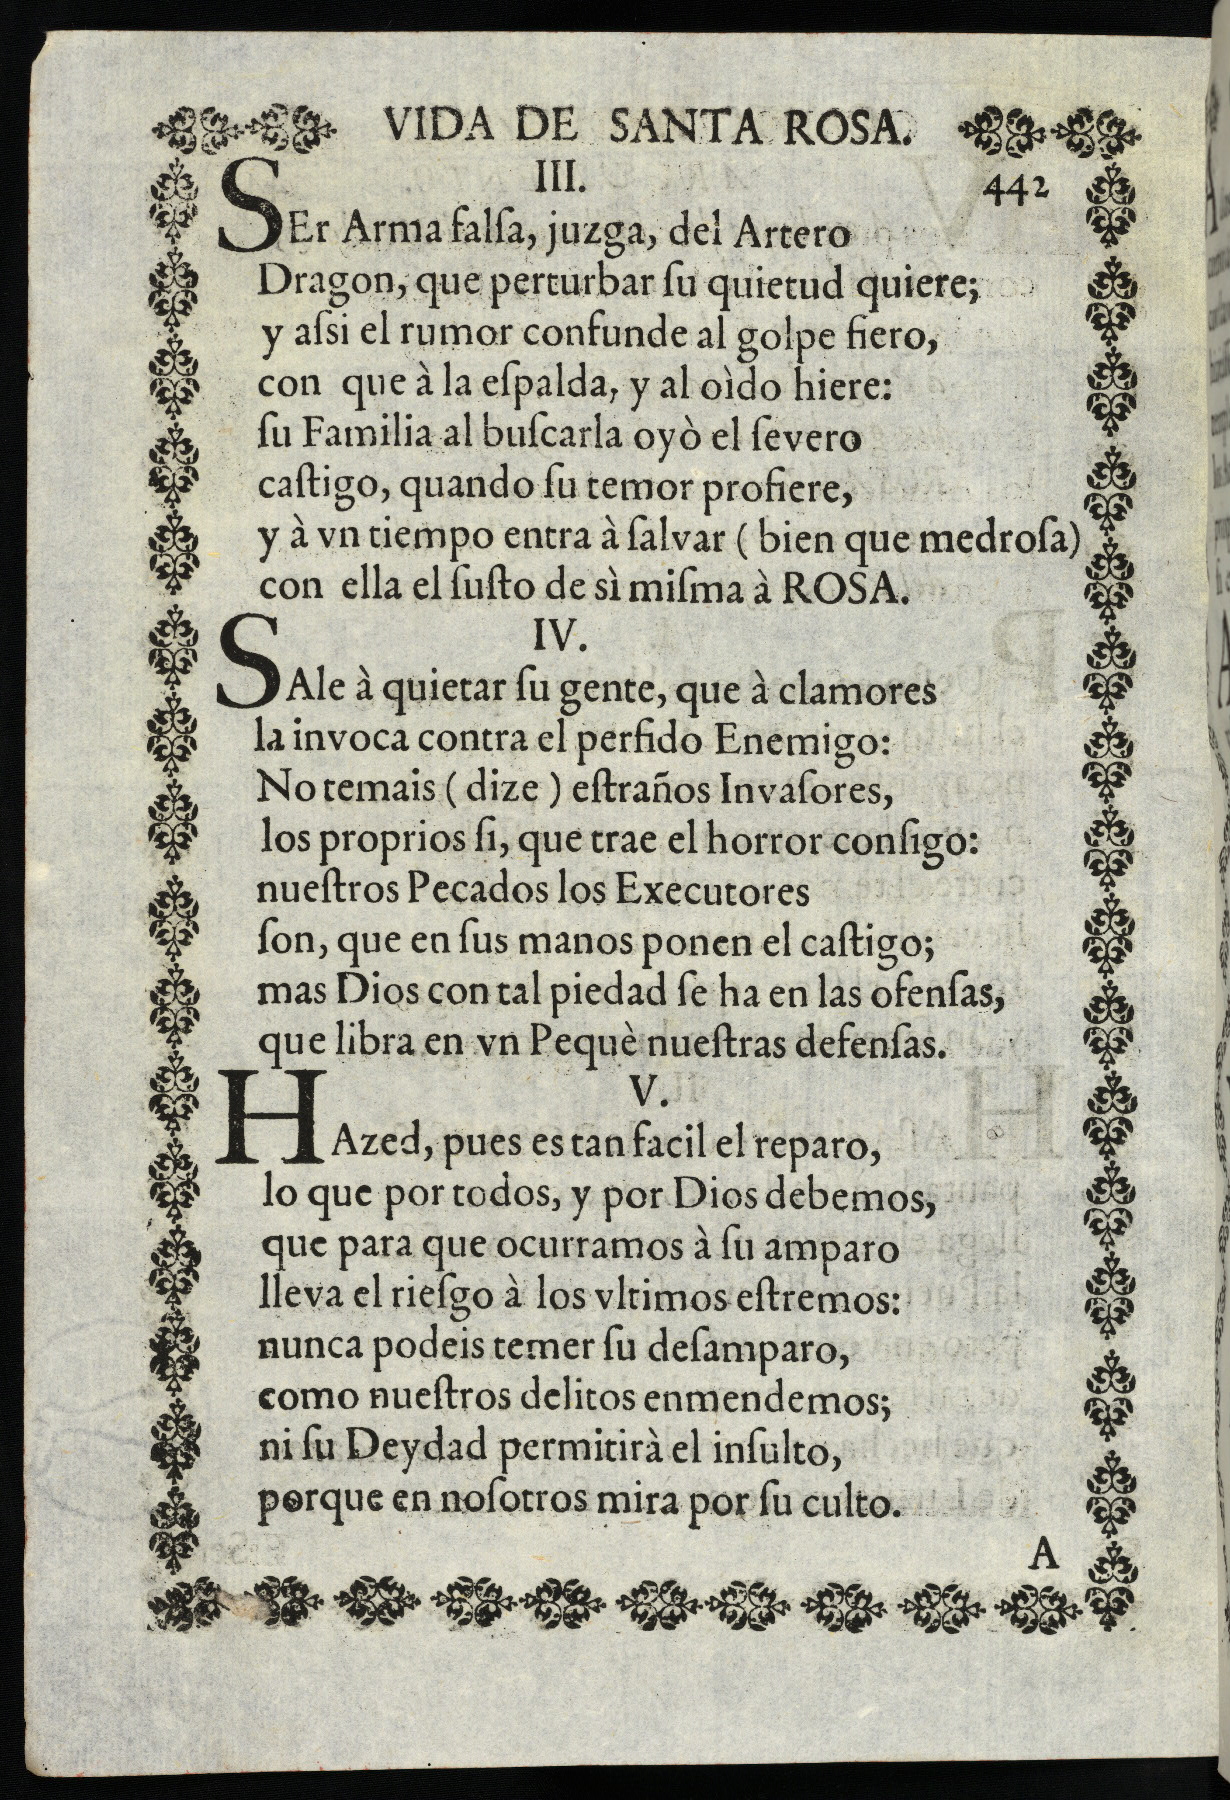 VIDA DE SANTA ROSA.
III.
442
SEr Arma falſa, juzga, del Artero
Dragon, que perturbar ſu quietud quiere;
y aſsi el rumor confunde al golpe fiero,
con que à la eſpalda, y al oìdo hiere:
ſu Familia al buſcarla oyò el ſevero
caſtigo, quando ſu temor profiere,
y à vn tiempo entra à ſalvar ( bien que medroſa)
con ella el ſuſto de sì miſma à ROSA.
IV.
SAle à quietar ſu gente, que à clamores
la invoca contra el perfido Enemigo:
No temais ( dize ) eſtraños Invaſores,
los proprios ſi, que trae el horror conſigo:
nueſtros Pecados los Executores
ſon, que en ſus manos ponen el caſtigo;
mas Dios con tal piedad ſe ha en las ofenſas,
que libra en vn Pequè nueſtras defenſas.
V.
HAzed, pues es tan facil el reparo,
lo que por todos, y por Dios debemos,
que para que ocurramos à ſu amparo
lleva el rieſgo à los vltimos eſtremos:
nunca podeis temer ſu deſamparo,
como nueſtros delitos enmendemos;
ni ſu Deydad permitirà el inſulto,
porque en noſotros mira por ſu culto.
A